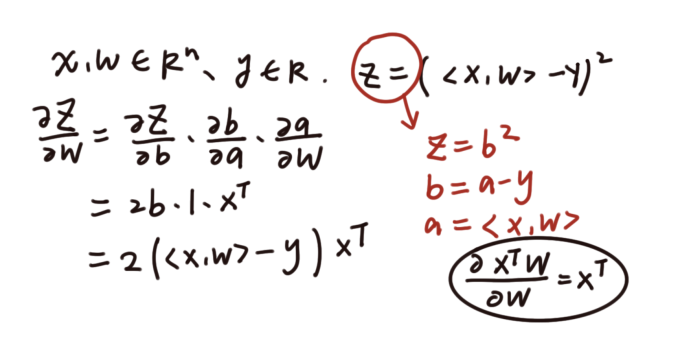 x,w ∈ Rⁿ、y ∈ R. z = (<x,w> - y)²
∂z/∂w = ∂z/∂b · ∂b/∂a · ∂a/∂w
= 2b · 1 · xᵀ
= 2(<x,w> - y) xᵀ
z = b²
b = a - y
a = <x,w>
∂xᵀw/∂w = xᵀ